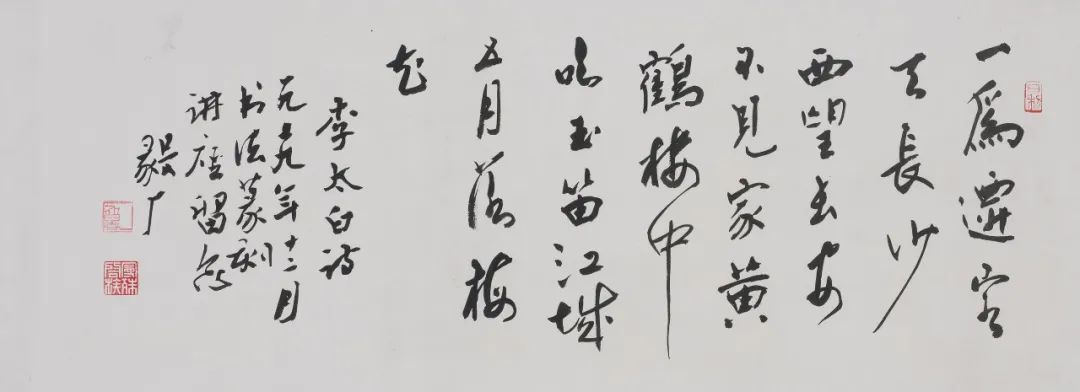 一爲遷客
去長沙
西望长安
不見家黄
鶴楼中
吹玉笛江城
五月落梅
花
李太白诗
年十二月
书法篆刻
讲座留念
毅厂